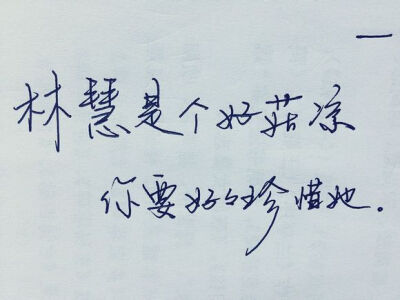 林慧是个好菇凉
你要好好珍惜她.